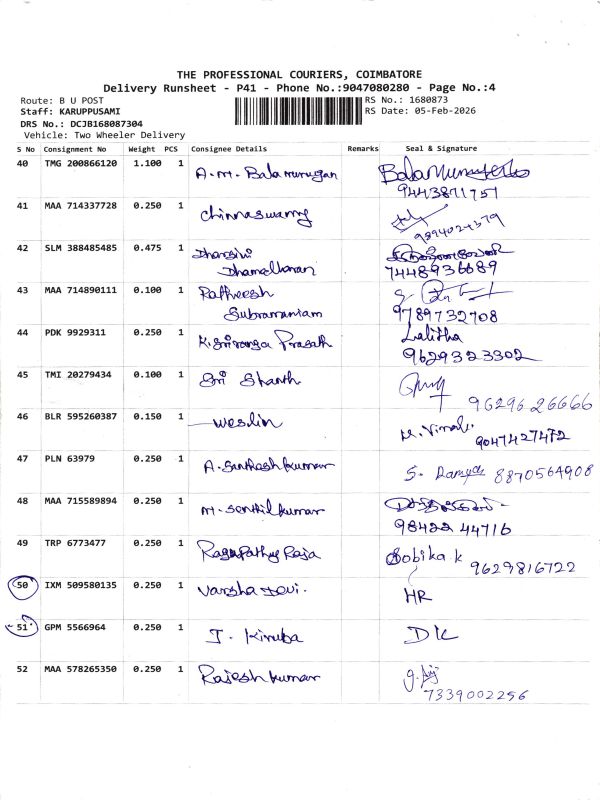 THE PROFESSIONAL COURIERS, COIMBATORE
Delivery Runsheet - P41 - Phone No.:9047080280 - Page No.:4
Route: B U POST
RS No.: 1680873
Staff: KARUPPUSAMI
RS Date: 05-Feb-2026
DRS No.: DCJB168087304
Vehicle: Two Wheeler Delivery
S No Consignment No Weight PCS Consignee Details Remarks Seal & Signature
40 TMG 200866120 1.100 1 A.M. Balamurugan
9443871757
41 MAA 714337728 0.250 1 Chinnaswamy
9894024379
42 SLM 388485485 0.475 1 Dharsini
7448936689
43 MAA 714890111 0.100 1
Subramaniam
9789732708
44 PDK 9929311 0.250 1 K. Sriranga Prasath Lalitha
9629323302
45 TMI 20279434 0.100 1 Sri Shanth
96296 26666
46 BLR 595260387 0.150 1 Weslin
9047427472
47 PLN 63979 0.250 1 A. Santhosh kumar S. 8870564908
48 MAA 715589894 0.250 1 M. Senthil kumar
98422 44716
49 TRP 6773477 0.250 1 Ragupathy Raja Sobika k
9629816722
50 IXM 509580135 0.250 1 Varsha Devi. HR
51 GPM 5566964 0.250 1 J. Kiruba DK
52 MAA 578265350 0.250 1 Rajesh kumar
7339002256